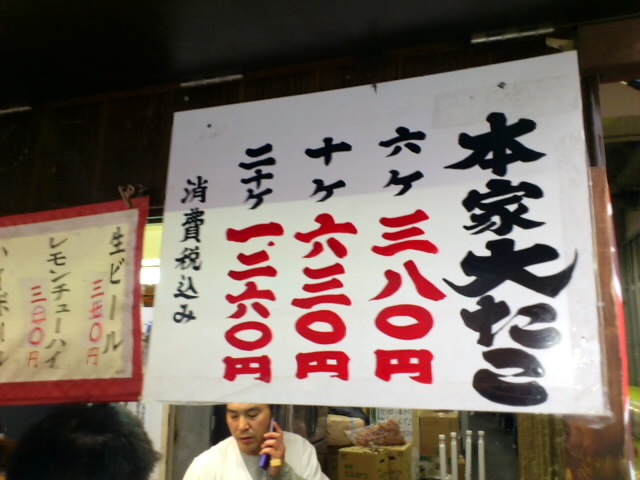 本家大たこ
六ヶ三八〇円
十ヶ六三〇円
二十ヶ一、二六〇円
消費税込み
生ビール
レモンチューハイ
ハイボール